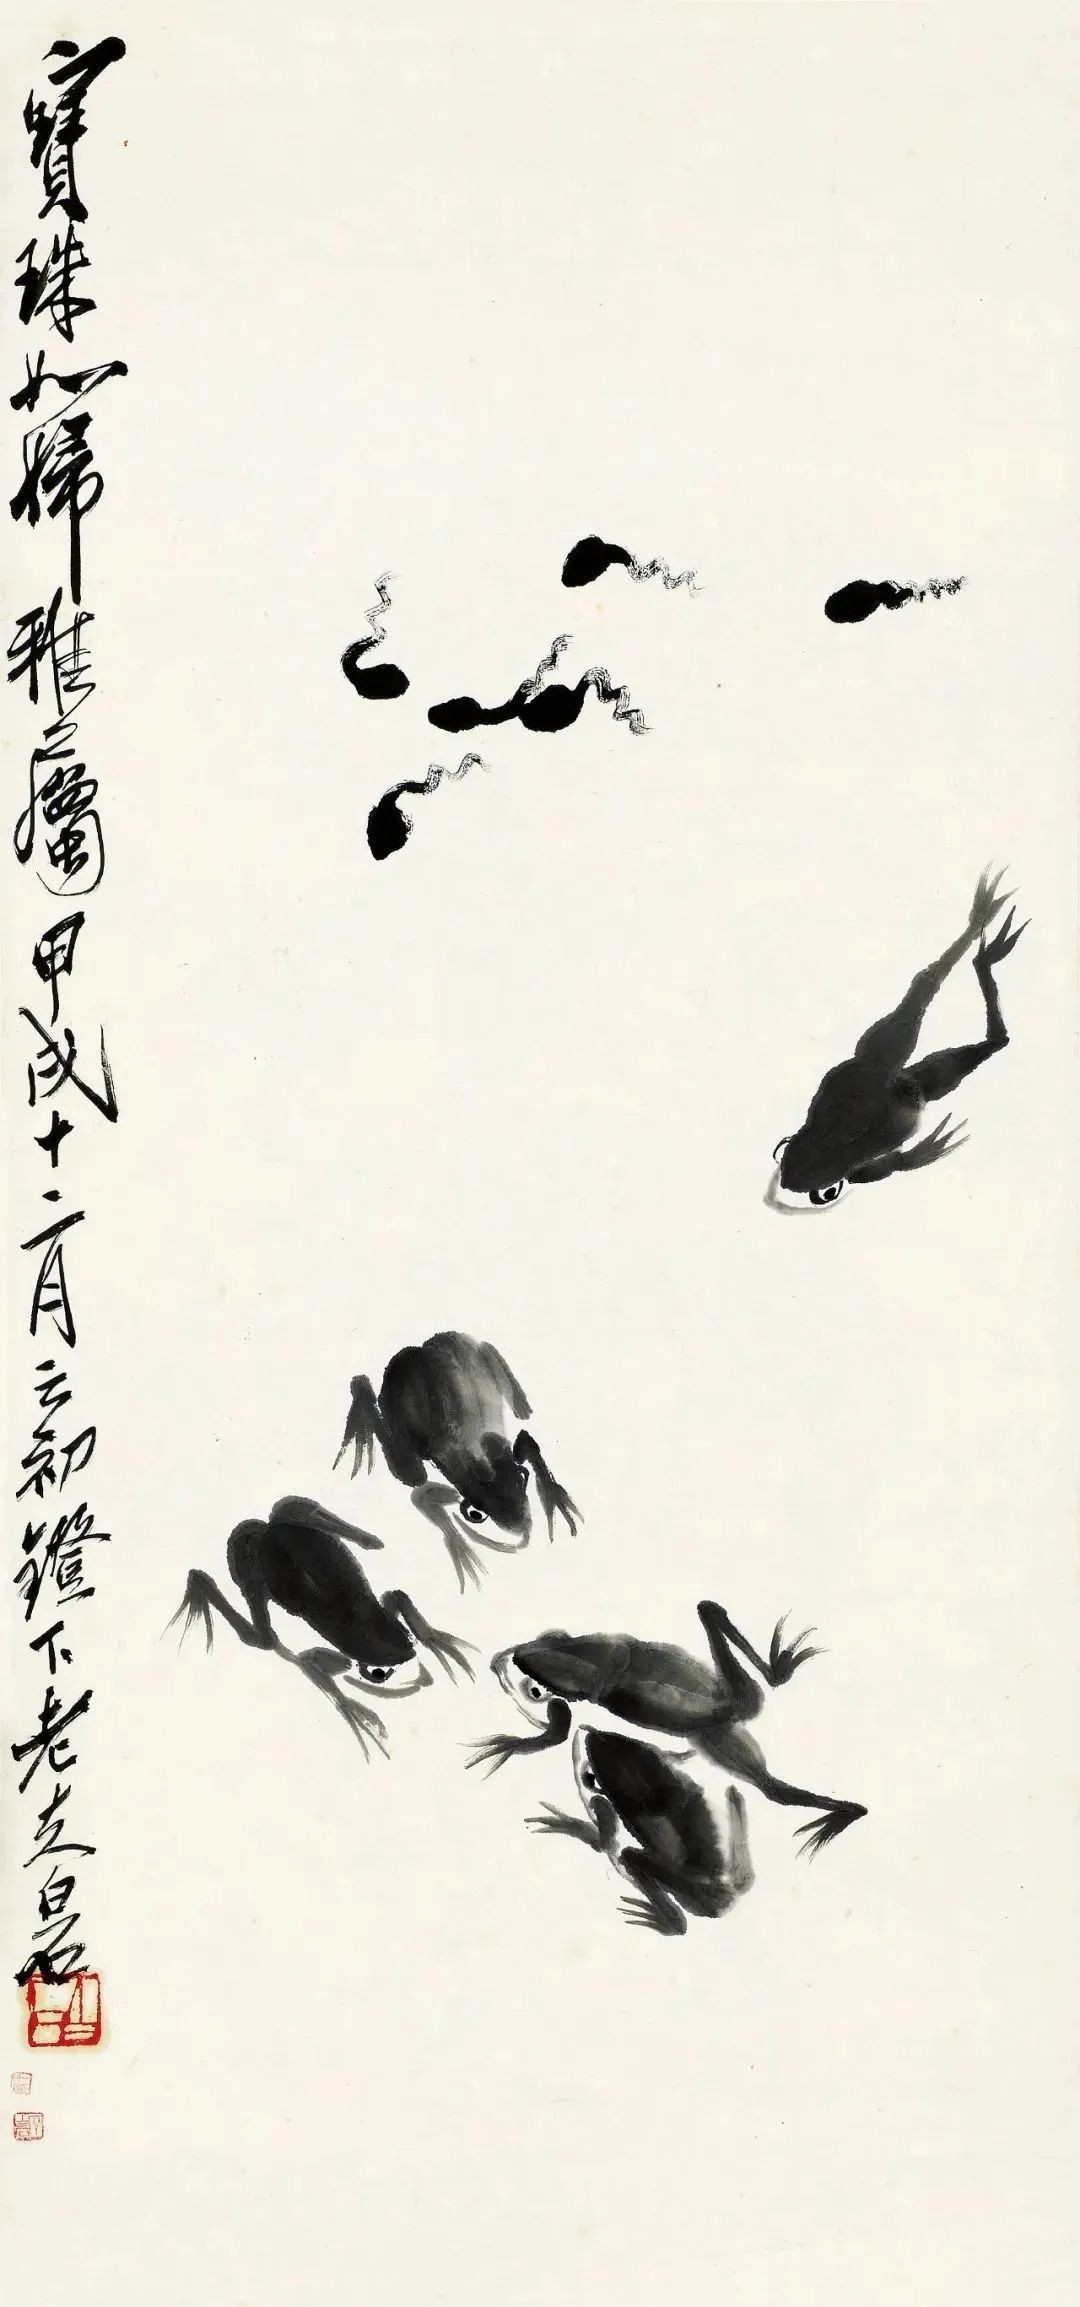 寶珠如婦雅屬甲戌十二月之初鐙下老夫白石